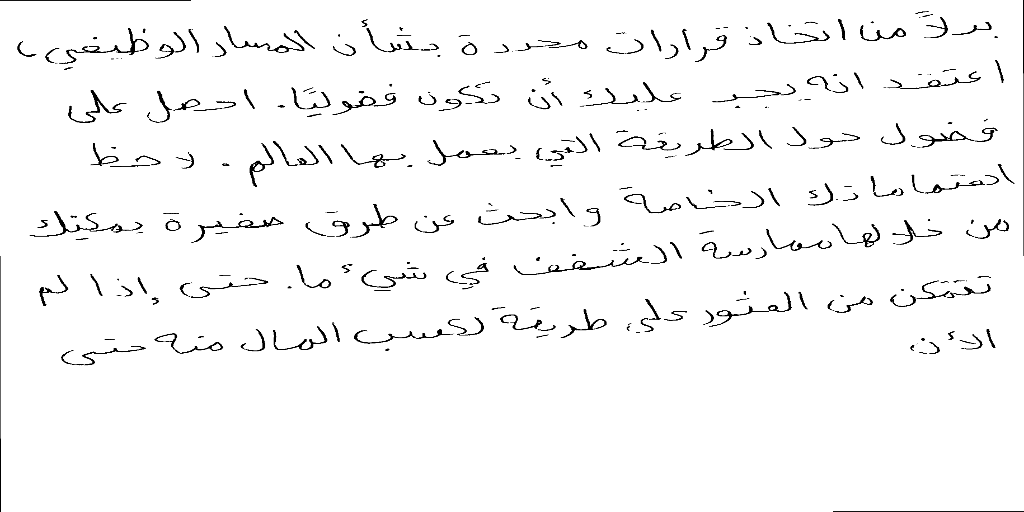 بدلاً من اتخاذ قرارات محددة بشأن المسار الوظيفي،
اعتقد انه يجب عليك أن تكون فضوليًا. احصل على
فضول حول الطريقة التي يعمل بها العالم. لاحظ
اهتماماتك الخاصة وابحث عن طرق صغيرة يمكنك
من خلالها ممارسة الشغف في شيء ما. حتى إذا لم
تتمكن من العثور على طريقة لكسب المال منه حتى
الأن